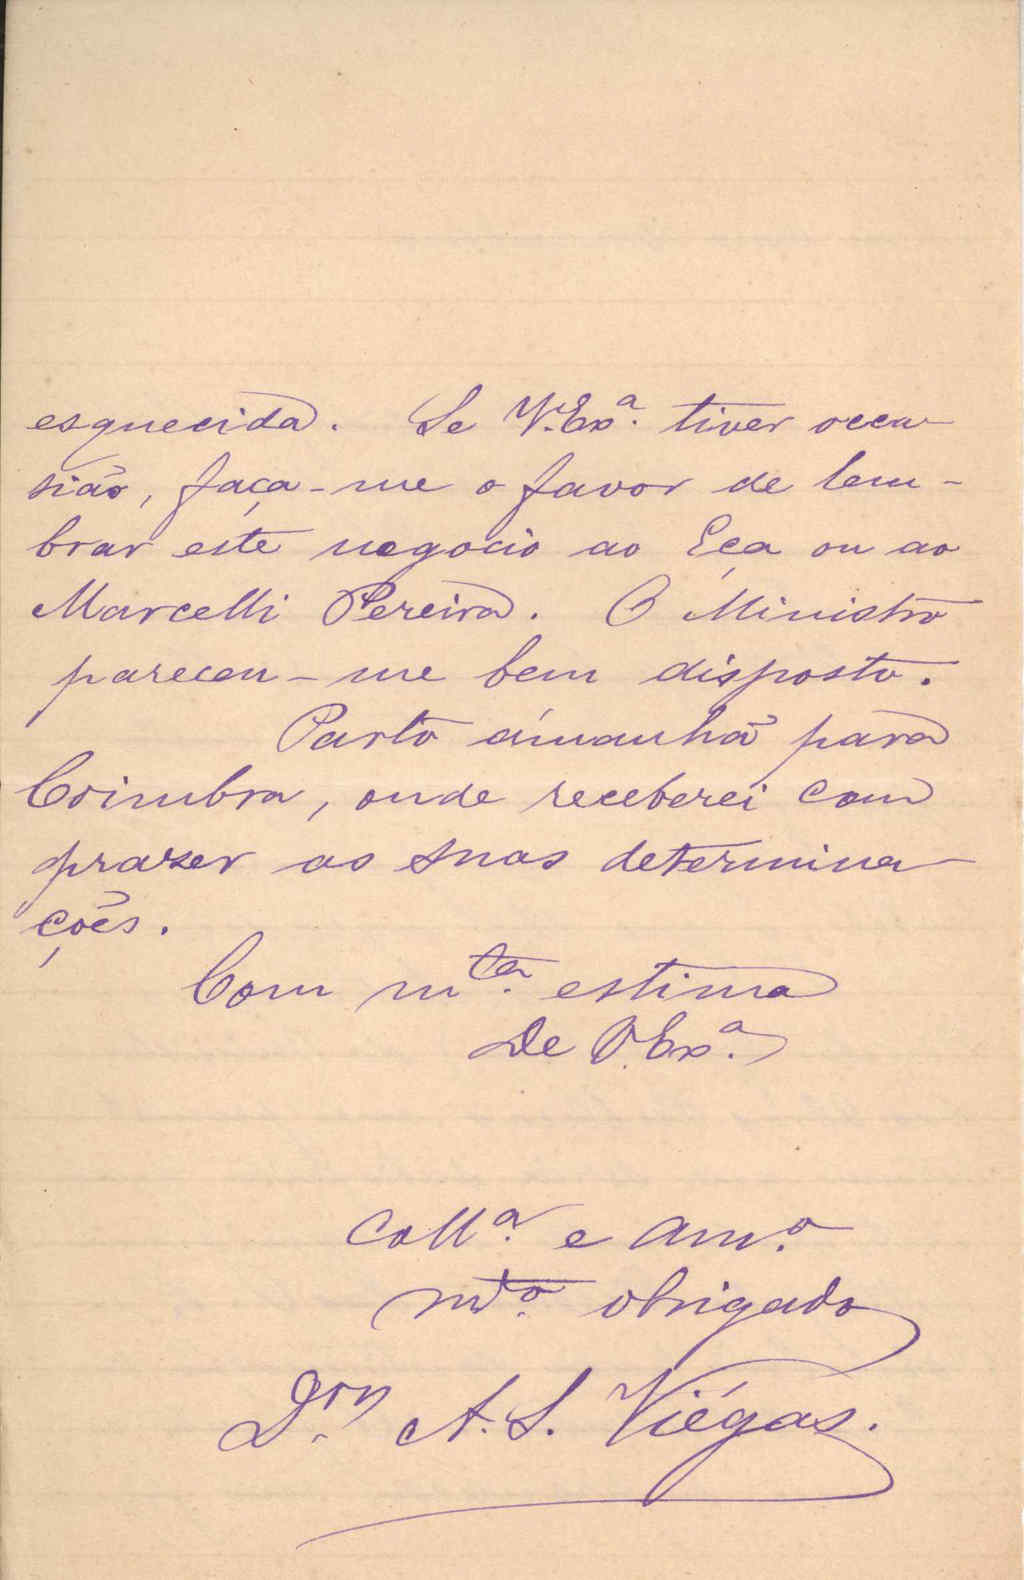 esquecida. Se V. Exª. tiver occa-
sião, faça-me o favor de lem-
brar este negocio ao Eça ou ao
Marcelli Pereira. O Ministro
pareceu-me bem disposto.
Parto ámanhã para
Coimbra, onde receberei com
prazer as suas determina-
ções.
Com mta. estima
De V. Exª.
Collª. e amº.
mtº. obrigado
A. S. Viégas.